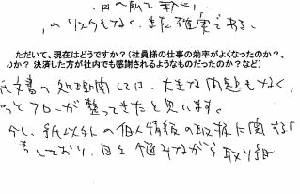 のリスクもなく、また確実である
ただいて、現在はどうですか？（社員様の仕事の効率がよくなったのか？、
)か？ 決済した方が社内でも感謝されるようなものだったのか？など）
文書の処理に関しては、大きな問題もなく、
フローが整ってきたと思います。
紙以外の個人情報の取扱に関する
しており、日々悩みながら取り組